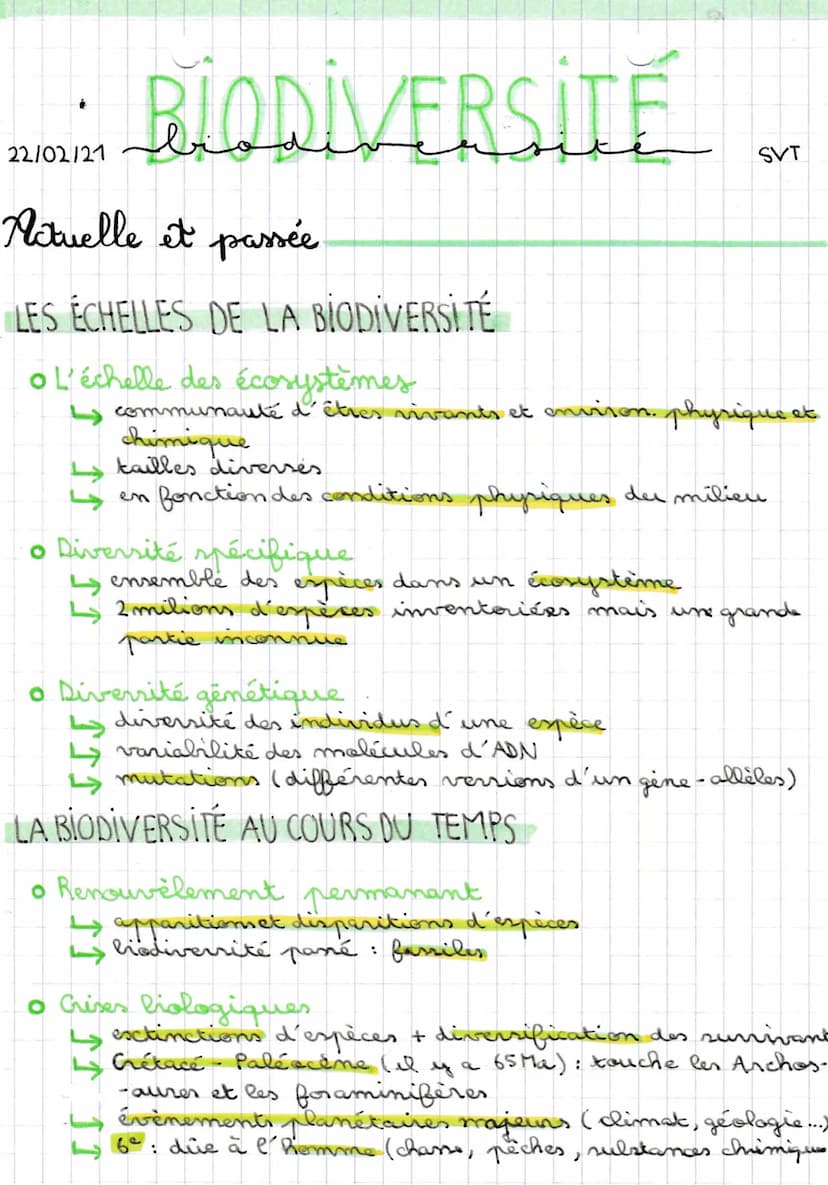 BIODIVERSITÉ
biodiversité
22/02/21
SVT
Actuelle et passée
LES ÉCHELLES DE LA BIODIVERSITÉ
L'échelle des écosystèmes
↳ communauté d'êtres vivants et environ. physique et
chimique
↳ tailles diverses
↳ en fonction des conditions physiques du milieu
Diversité spécifique
↳ ensemble des espèces dans un écosystème
↳ 2 milions d'espèces inventoriées mais une grande
partie inconnue
Diversité génétique
↳ diversité des individus d'une espèce
↳ variabilité des molécules d'ADN
↳ mutations (différentes versions d'un gène - allèles)
LA BIODIVERSITÉ AU COURS DU TEMPS
Renouvèlement permanant
↳ apparitions et disparitions d'espèces
↳ biodiversité passé : fossiles
Crises biologiques
↳ exctinctions d'espèces + diversification des survivant
↳ Crétacé - Paléocène (il y a 65 Ma) : touche les Archos-
-aures et les foraminifères
↳ évènements planétaires majeurs (climat, géologie...)
↳ 6e : dûe à l'Homme (chasse, pêches, substances chimique